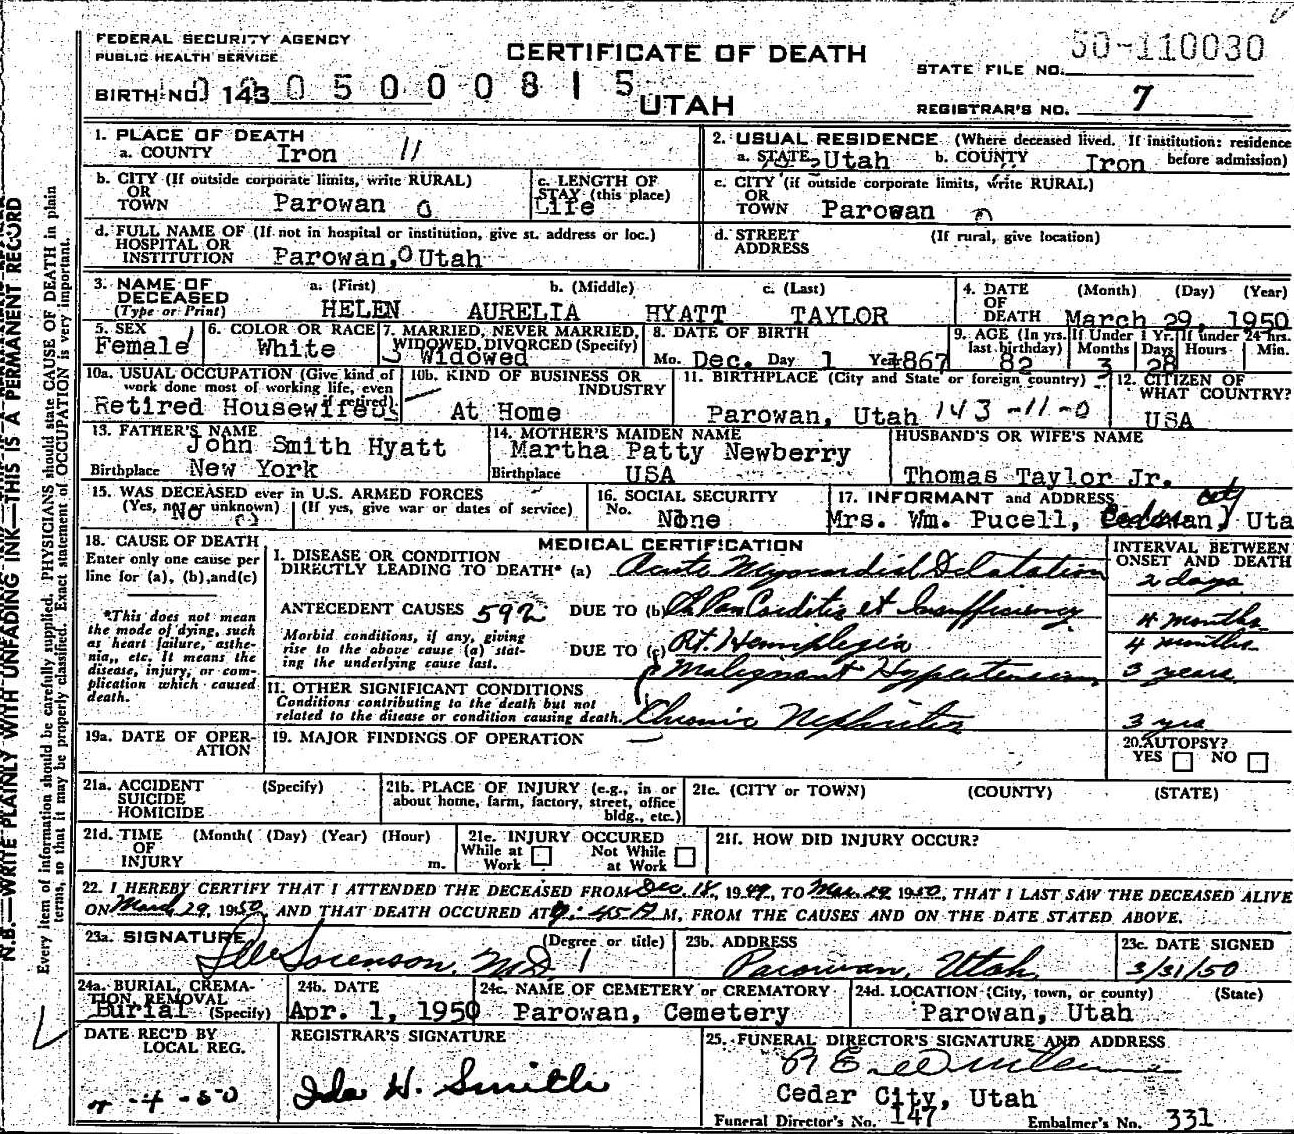 FEDERAL SECURITY AGENCY
PUBLIC HEALTH SERVICE
CERTIFICATE OF DEATH
50-110030
STATE FILE NO.
BIRTH NO. 143 0 5 0 0 0 8 1 5
UTAH
REGISTRAR'S NO. 7
1. PLACE OF DEATH
a. COUNTY Iron 11
2. USUAL RESIDENCE (Where deceased lived. If institution: residence before admission)
a. STATE Utah b. COUNTY Iron
b. CITY (If outside corporate limits, write RURAL)
OR
TOWN Parowan 0
c. LENGTH OF
STAY (this place)
Life
c. CITY (if outside corporate limits, write RURAL)
OR
TOWN Parowan 0
d. FULL NAME OF (If not in hospital or institution, give st. address or loc.)
HOSPITAL OR
INSTITUTION Parowan, Utah
d. STREET
ADDRESS (If rural, give location)
3. NAME OF
DECEASED
(Type or Print)
a. (First) b. (Middle) c. (Last)
HELEN AURELIA HYATT TAYLOR
4. DATE
OF
DEATH
(Month) (Day) (Year)
March 29, 1950
5. SEX
Female
6. COLOR OR RACE
White
7. MARRIED, NEVER MARRIED,
WIDOWED, DIVORCED (Specify)
Widowed
8. DATE OF BIRTH
Mo. Dec. Day 1 Year 1867
9. AGE (In yrs.
last birthday)
82
If Under 1 Yr.
Months Days
3 28
If under 24 hrs.
Hours Min.
10a. USUAL OCCUPATION (Give kind of
work done most of working life, even
if retired)
Retired Housewife
10b. KIND OF BUSINESS OR
INDUSTRY
At Home
11. BIRTHPLACE (City and State or foreign country)
Parowan, Utah 143-11-0
12. CITIZEN OF
WHAT COUNTRY?
USA
13. FATHER'S NAME
John Smith Hyatt
Birthplace New York
14. MOTHER'S MAIDEN NAME
Martha Patty Newberry
Birthplace USA
HUSBAND'S OR WIFE'S NAME
Thomas Taylor Jr.
15. WAS DECEASED ever in U.S. ARMED FORCES
(Yes, no, or unknown) (If yes, give war or dates of service)
No
16. SOCIAL SECURITY
No. None
17. INFORMANT and ADDRESS
Mrs. Wm. Pucell, City Uta
18. CAUSE OF DEATH
Enter only one cause per
line for (a), (b), and (c)
*This does not mean
the mode of dying, such
as heart failure, asthe-
nia, etc. It means the
disease, injury, or com-
plication which caused
death.
MEDICAL CERTIFICATION
I. DISEASE OR CONDITION
DIRECTLY LEADING TO DEATH* (a) Acute Myocardial Dilatation
ANTECEDENT CAUSES 592 DUE TO (b) Ch. Pan Carditis et Insufficiency
Morbid conditions, if any, giving
rise to the above cause (a) stat-
ing the underlying cause last.
DUE TO (c) Rt. Hemiplegia
Malignant Hypertension
II. OTHER SIGNIFICANT CONDITIONS
Conditions contributing to the death but not
related to the disease or condition causing death.
Chronic Nephritis
INTERVAL BETWEEN
ONSET AND DEATH
2 days
4 months
4 months
3 years
3 yrs
19a. DATE OF OPER-
ATION
19. MAJOR FINDINGS OF OPERATION
20. AUTOPSY?
YES NO
21a. ACCIDENT
SUICIDE
HOMICIDE
(Specify)
21b. PLACE OF INJURY (e.g., in or
about home, farm, factory, street, office
bldg., etc.)
21c. (CITY or TOWN) (COUNTY) (STATE)
21d. TIME
OF
INJURY
(Month( (Day) (Year) (Hour)
m.
21e. INJURY OCCURED
While at
Work
Not While
at Work
21f. HOW DID INJURY OCCUR?
22. I HEREBY CERTIFY THAT I ATTENDED THE DECEASED FROM Dec. 18, 1949, TO Mar. 29 1950, THAT I LAST SAW THE DECEASED ALIVE
ON March 29, 1950, AND THAT DEATH OCCURED AT 9:45 P M, FROM THE CAUSES AND ON THE DATE STATED ABOVE.
23a. SIGNATURE (Degree or title)
Sorenson, MD
23b. ADDRESS
Parowan, Utah
23c. DATE SIGNED
3/31/50
24a. BURIAL, CREMA-
TION, REMOVAL
Burial (Specify)
24b. DATE
Apr. 1, 1950
24c. NAME OF CEMETERY or CREMATORY
Parowan, Cemetery
24d. LOCATION (City, town, or county) (State)
Parowan, Utah
DATE REC'D BY
LOCAL REG.
4-50
REGISTRAR'S SIGNATURE
Ida H. Smith
25. FUNERAL DIRECTOR'S SIGNATURE AND ADDRESS
Cedar City, Utah
Funeral Director's No. 147 Embalmer's No. 331
N.B.—WRITE PLAINLY WITH UNFADING INK—THIS IS A PERMANENT RECORD
Every item of information should be carefully supplied. PHYSICIANS should state CAUSE OF DEATH in plain
terms, so that it may be properly classified. Exact statement of OCCUPATION is very important.